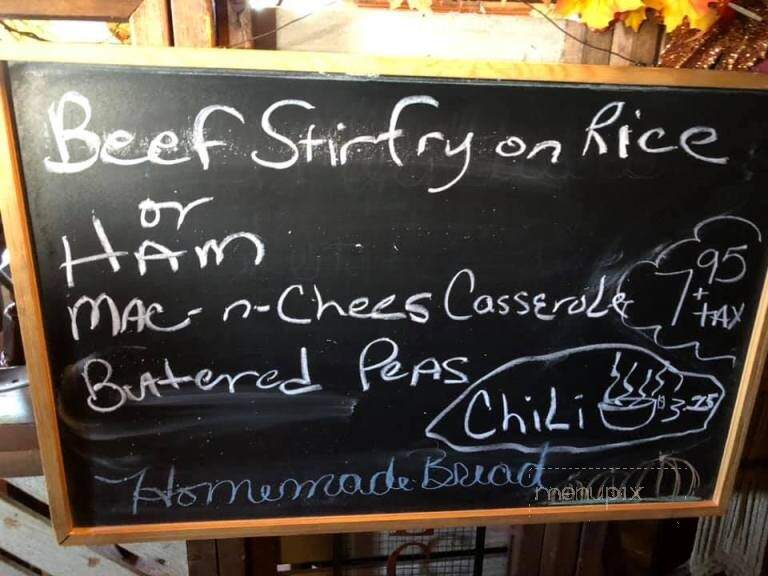 Beef Stirfry on Rice
or
HAM
MAC-n-Chees Casserole
7 95
+ TAX
Buttered Peas
Chili 3.25
Homemade Bread
menupix